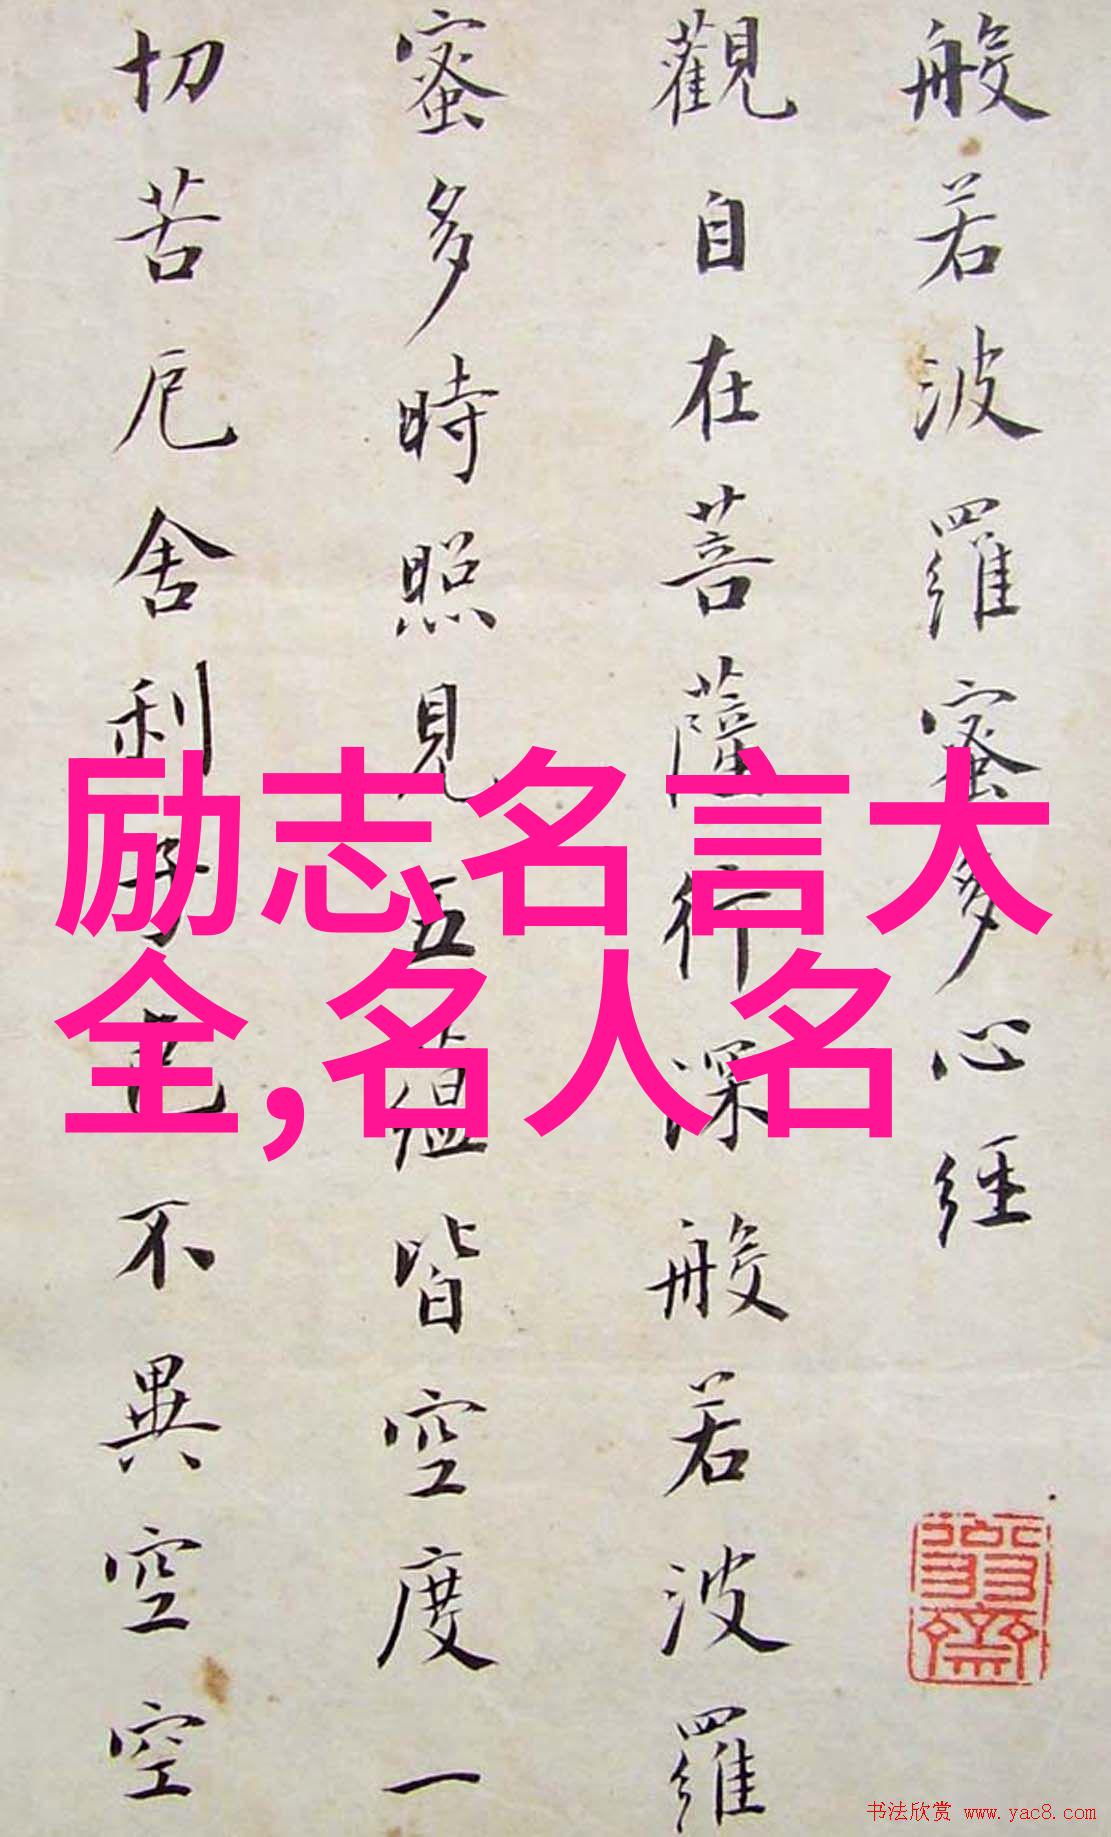 般若波羅蜜多心經
觀自在菩薩行深般若波羅
蜜多時照見五蘊皆空度一
切苦厄舍利子色不異空空
励志名言大
全,名人名
书法欣赏 www.yac8.com